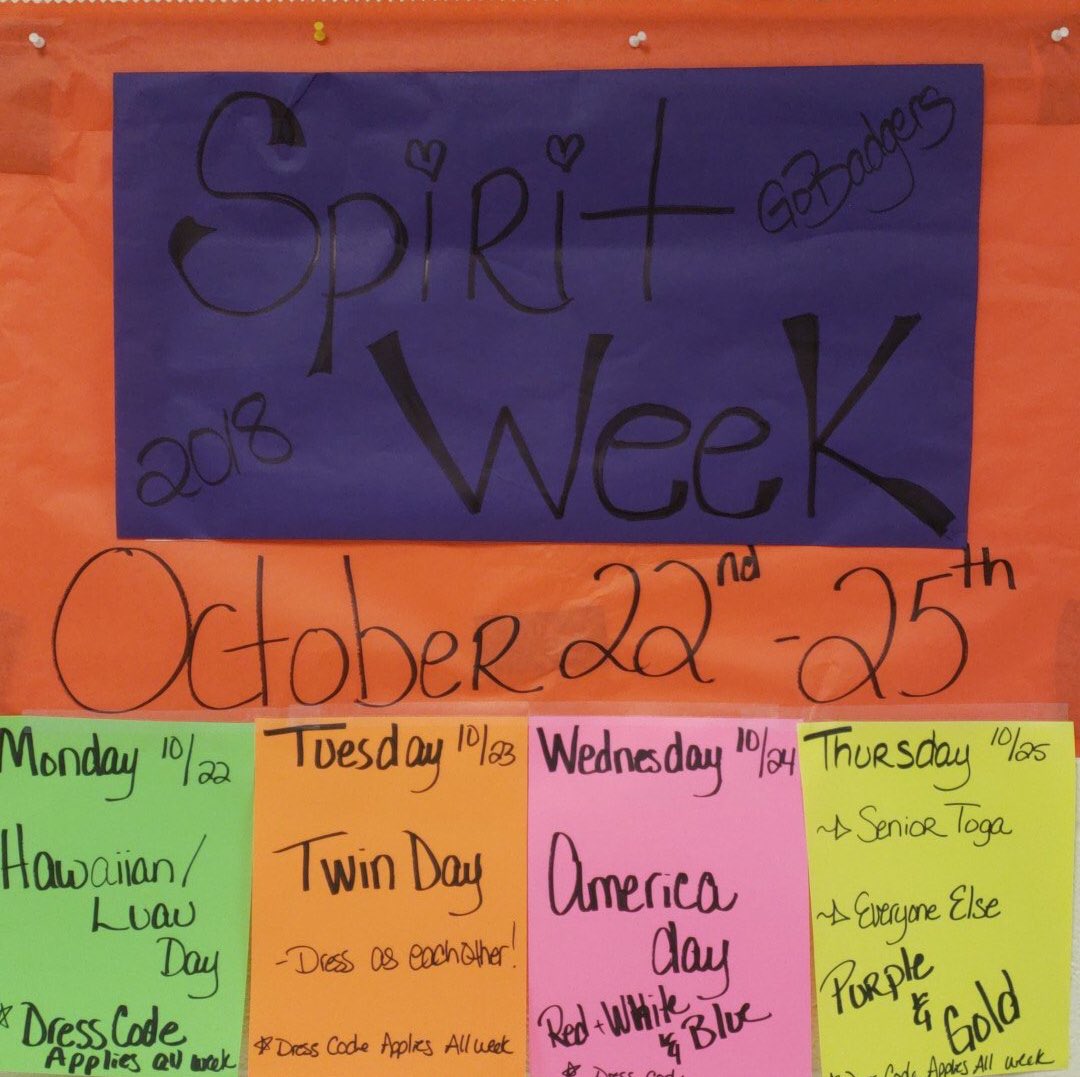 Spirit
GoBadgers
2018
Week
October 22nd - 25th
Monday 10/22
Hawaiian/
Luau
Day
☆ Dress Code
Applies all week
Tuesday 10/23
Twin Day
- Dress as each other!
☆ Dress Code Applies All week
Wednesday 10/24
America
day
Red + White
& Blue
☆ Dress code
Thursday 10/25
→ Senior Toga
→ Everyone Else
Purple
&
Gold
Dress Code Applies All week